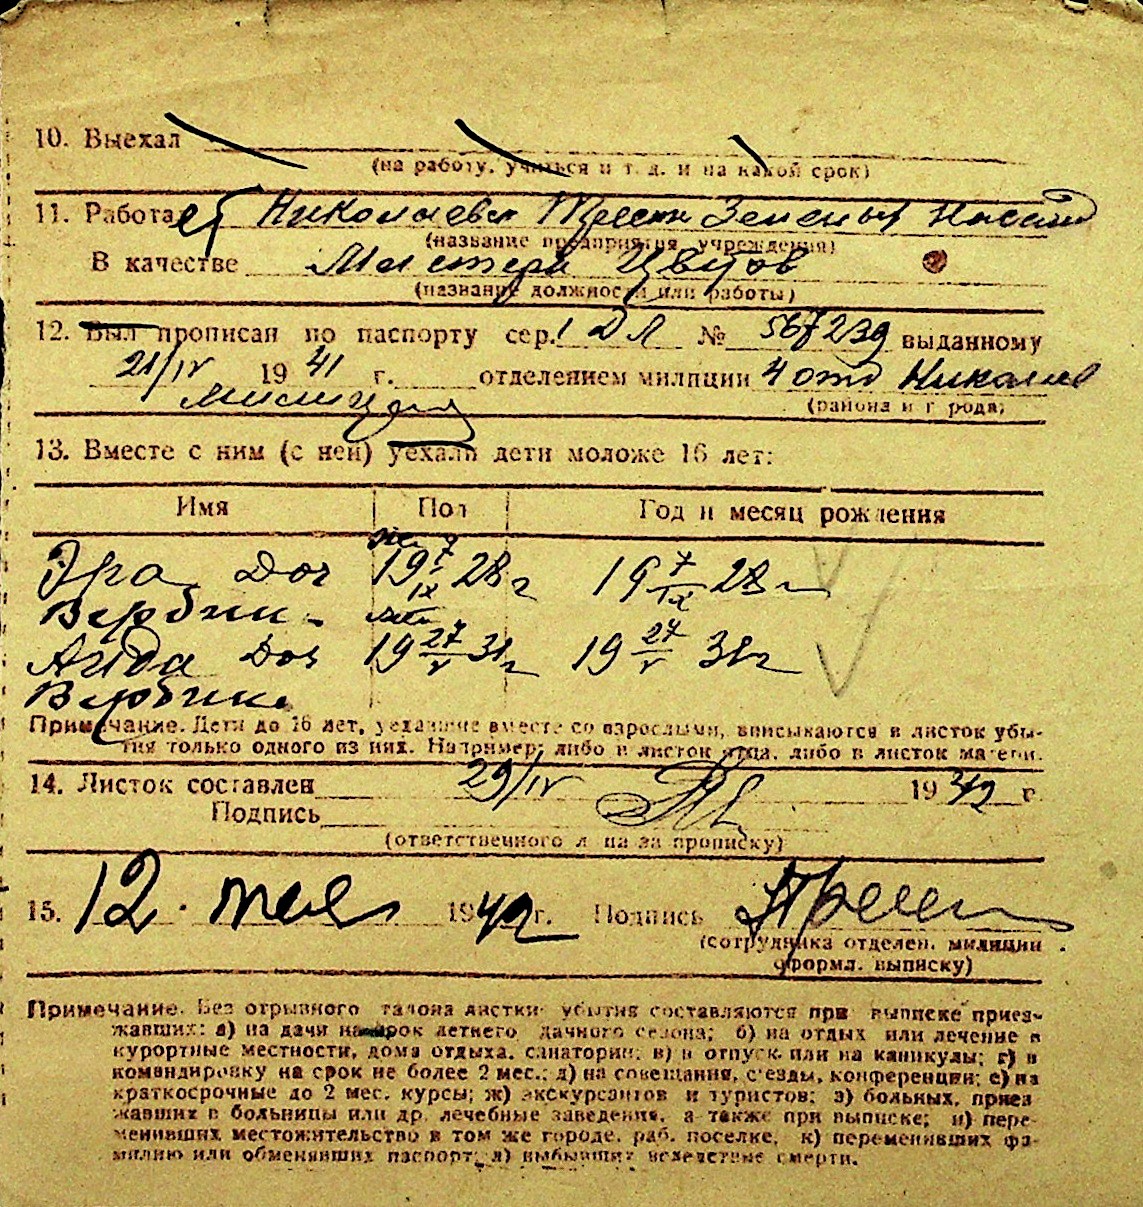 10. Выехал
(на работу, учиться и т. д. и на какой срок)
11. Работает Николаев Трест Зеленых Насажд
(название предприятия, учреждения)
В качестве Мастера Цветов
(название должности или работы)
12. Был прописан по паспорту сер. I ДЛ № 567239 выданному
21/IV 1941 г. отделением милиции 4 отд Николаев
милиции
(района и города)
13. Вместе с ним (с ней) уехали дети моложе 16 лет:
Имя Пол Год и месяц рождения
жен
Эра Доч 19 7/IX 28 г 19 7/IX 28 г
Вербин.
Аида Доч 19 27/V 31 г 19 27/V 31 г
Вербина
Примечание. Дети до 16 лет, уехавшие вместе со взрослыми, вписываются в листок убы-
тия только одного из них. Например: либо в листок отца, либо в листок матери.
14. Листок составлен 29/IV 1942 г.
Подпись
(ответственного лица за прописку)
15. 12. мая 1942 г. Подпись
(сотрудника отделен. милиции
оформл. выписку)
Примечание. Без отрывного талона листки убытия составляются при выписке приез-
жавших: а) на дачи на срок летнего дачного сезона; б) на отдых или лечение в
курортные местности, дома отдыха, санатории; в) в отпуск или на каникулы; г) в
командировку на срок не более 2 мес.; д) на совещания, с'езды, конференции; е) на
краткосрочные до 2 мес. курсы; ж) экскурсантов и туристов; з) больных, приез
жавших в больницы или др. лечебные заведения, а также при выписке; и) пере-
менивших местожительство в том же городе, раб. поселке, к) переменивших фа-
милию или обменявших паспорт; л) выбывших вследствие смерти.